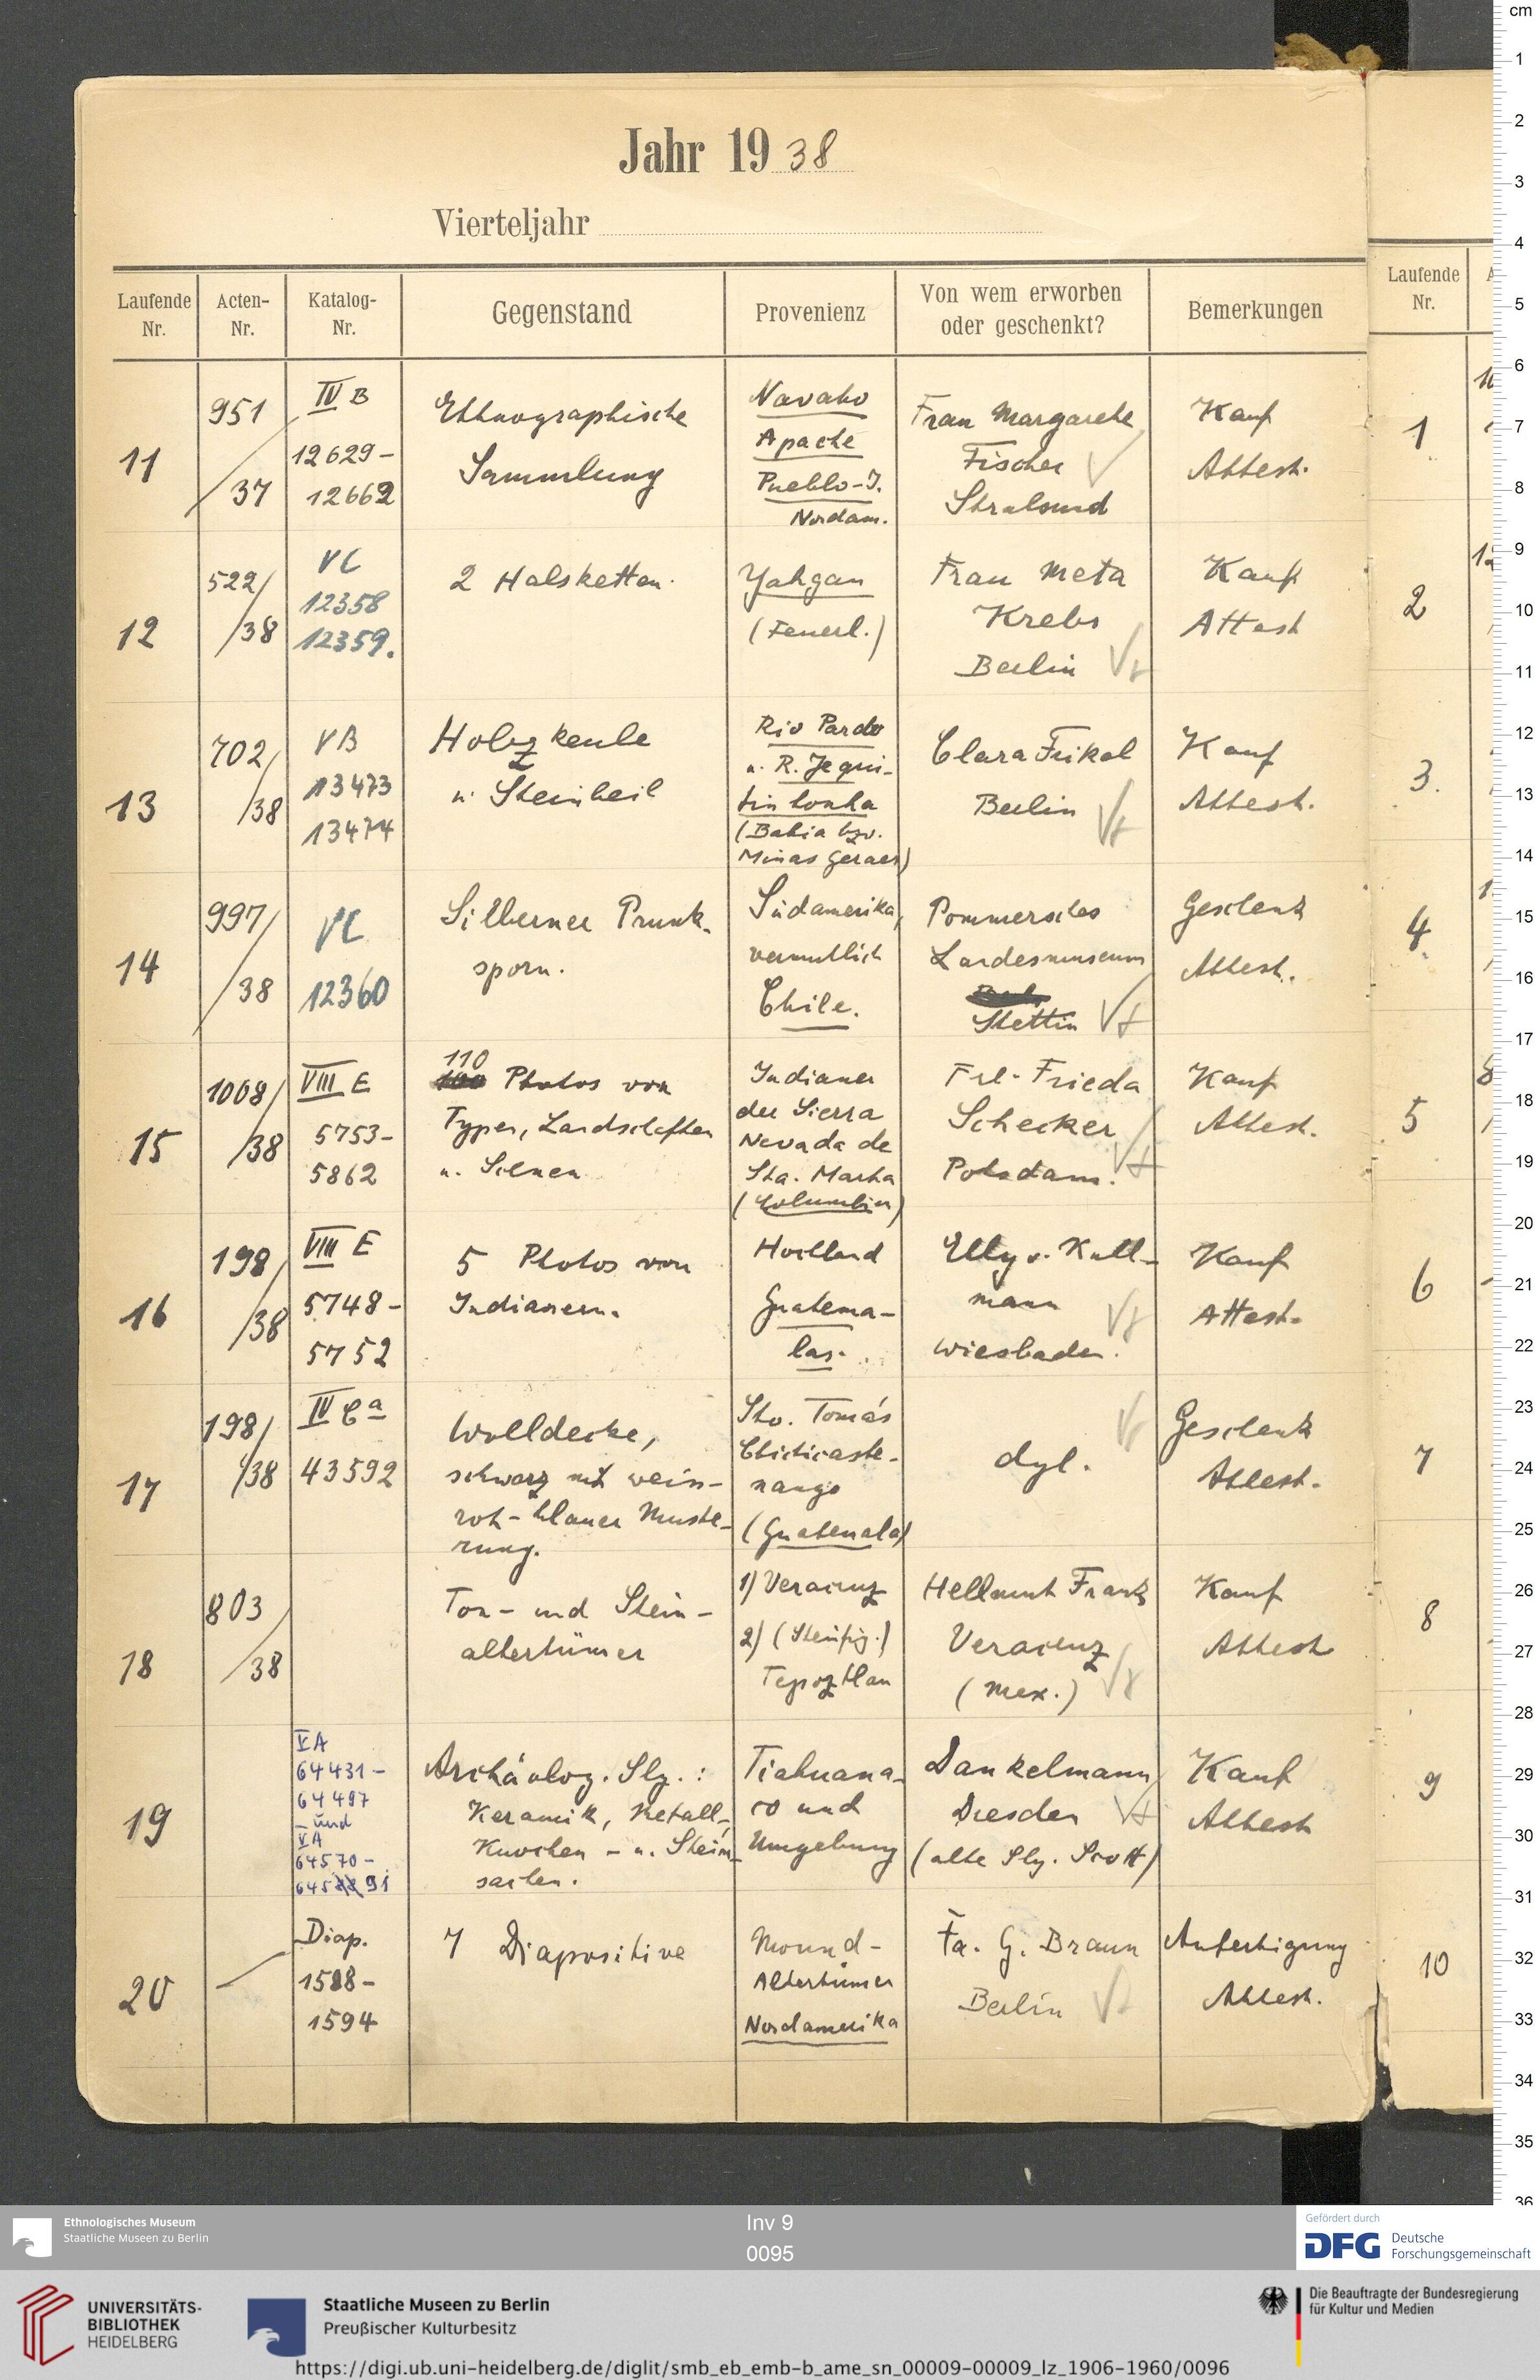 Jahr 1938
Vierteljahr
Laufende Nr.
Acten-Nr.
Katalog-Nr.
Gegenstand
Provenienz
Von wem erworben oder geschenkt?
Bemerkungen
11
951/37
IV B
12629-
12662
Ethnographische
Sammlung
Navaho
Apache
Pueblo-I.
Nordam.
Frau Margarete
Fischer
Stralsund
Kauf
Attest.
12
522/38
VC
12358
12359.
2 Halsketten.
Yahgan
(Feuerl.)
Frau Meta
Krebs
Berlin
Kauf
Attest
13
702/38
VB
13473
13474
Holzkeule
u. Steinbeil
Rio Pardo
u. R. Jequi-
tinhonha
(Bahia bzw.
Minas Geraes)
Clara Frikel
Berlin
Kauf
Attest.
14
997/38
VC
12360
Silberner Prunk-
sporn.
Südamerika,
vermutlich
Chile.
Pommersches
Landesmuseum
Stettin
Geschenk
Attest.
15
1008/38
VIII E
5753-
5862
110
100 Photos von
Typen, Landschaften
u. Scenen
Indianer
der Sierra
Nevada de
Sta. Marta
(Columbien)
Frl. Frieda
Schecker
Potsdam.
Kauf
Attest.
16
198/38
VIII E
5748-
5752
5 Photos von
Indianern.
Hochland
Guatema-
las.
Elly v. Kull-
mann
Wiesbaden.
Kauf
Attest.
17
198/38
IV Ca
43592
Wolldecke,
schwarz mit weiss-
rot-blauer Muste-
rung.
Sto. Tomás
Chichicaste-
nango
(Guatemala)
dgl.
Geschenk
Attest.
18
803/38
Ton- und Stein-
altertümer
1) Veracruz
2) (Steinfig.)
Tepoztlan
Hellmut Frank
Veracruz
(Mex.)
Kauf
Attest
19
VA
64431-
64497
und
VA
64570-
64591
Archäolog. Slg.:
Keramik, Metall-,
Knochen- u. Stein-
sachen.
Tiahuana-
co und
Umgebung
Dankelmann
Dresden
(alte Slg. Scott)
Kauf
Attest
20
Diap.
1588-
1594
7 Diapositive
Mound-
Altertümer
Nordamerika
Fa. G. Braun
Berlin
Anfertigung
Attest.
Laufende
Nr.
1
2
3.
4.
5
6
7
8
9
10
cm
1
2
3
4
5
6
7
8
9
10
11
12
13
14
15
16
17
18
19
20
21
22
23
24
25
26
27
28
29
30
31
32
33
34
35
36
Ethnologisches Museum
Staatliche Museen zu Berlin
Inv 9
0095
Gefördert durch
DFG Deutsche
Forschungsgemeinschaft
UNIVERSITÄTS-
BIBLIOTHEK
HEIDELBERG
Staatliche Museen zu Berlin
Preußischer Kulturbesitz
Die Beauftragte der Bundesregierung
für Kultur und Medien
https://digi.ub.uni-heidelberg.de/diglit/smb_eb_emb-b_ame_sn_00009-00009_lz_1906-1960/0096